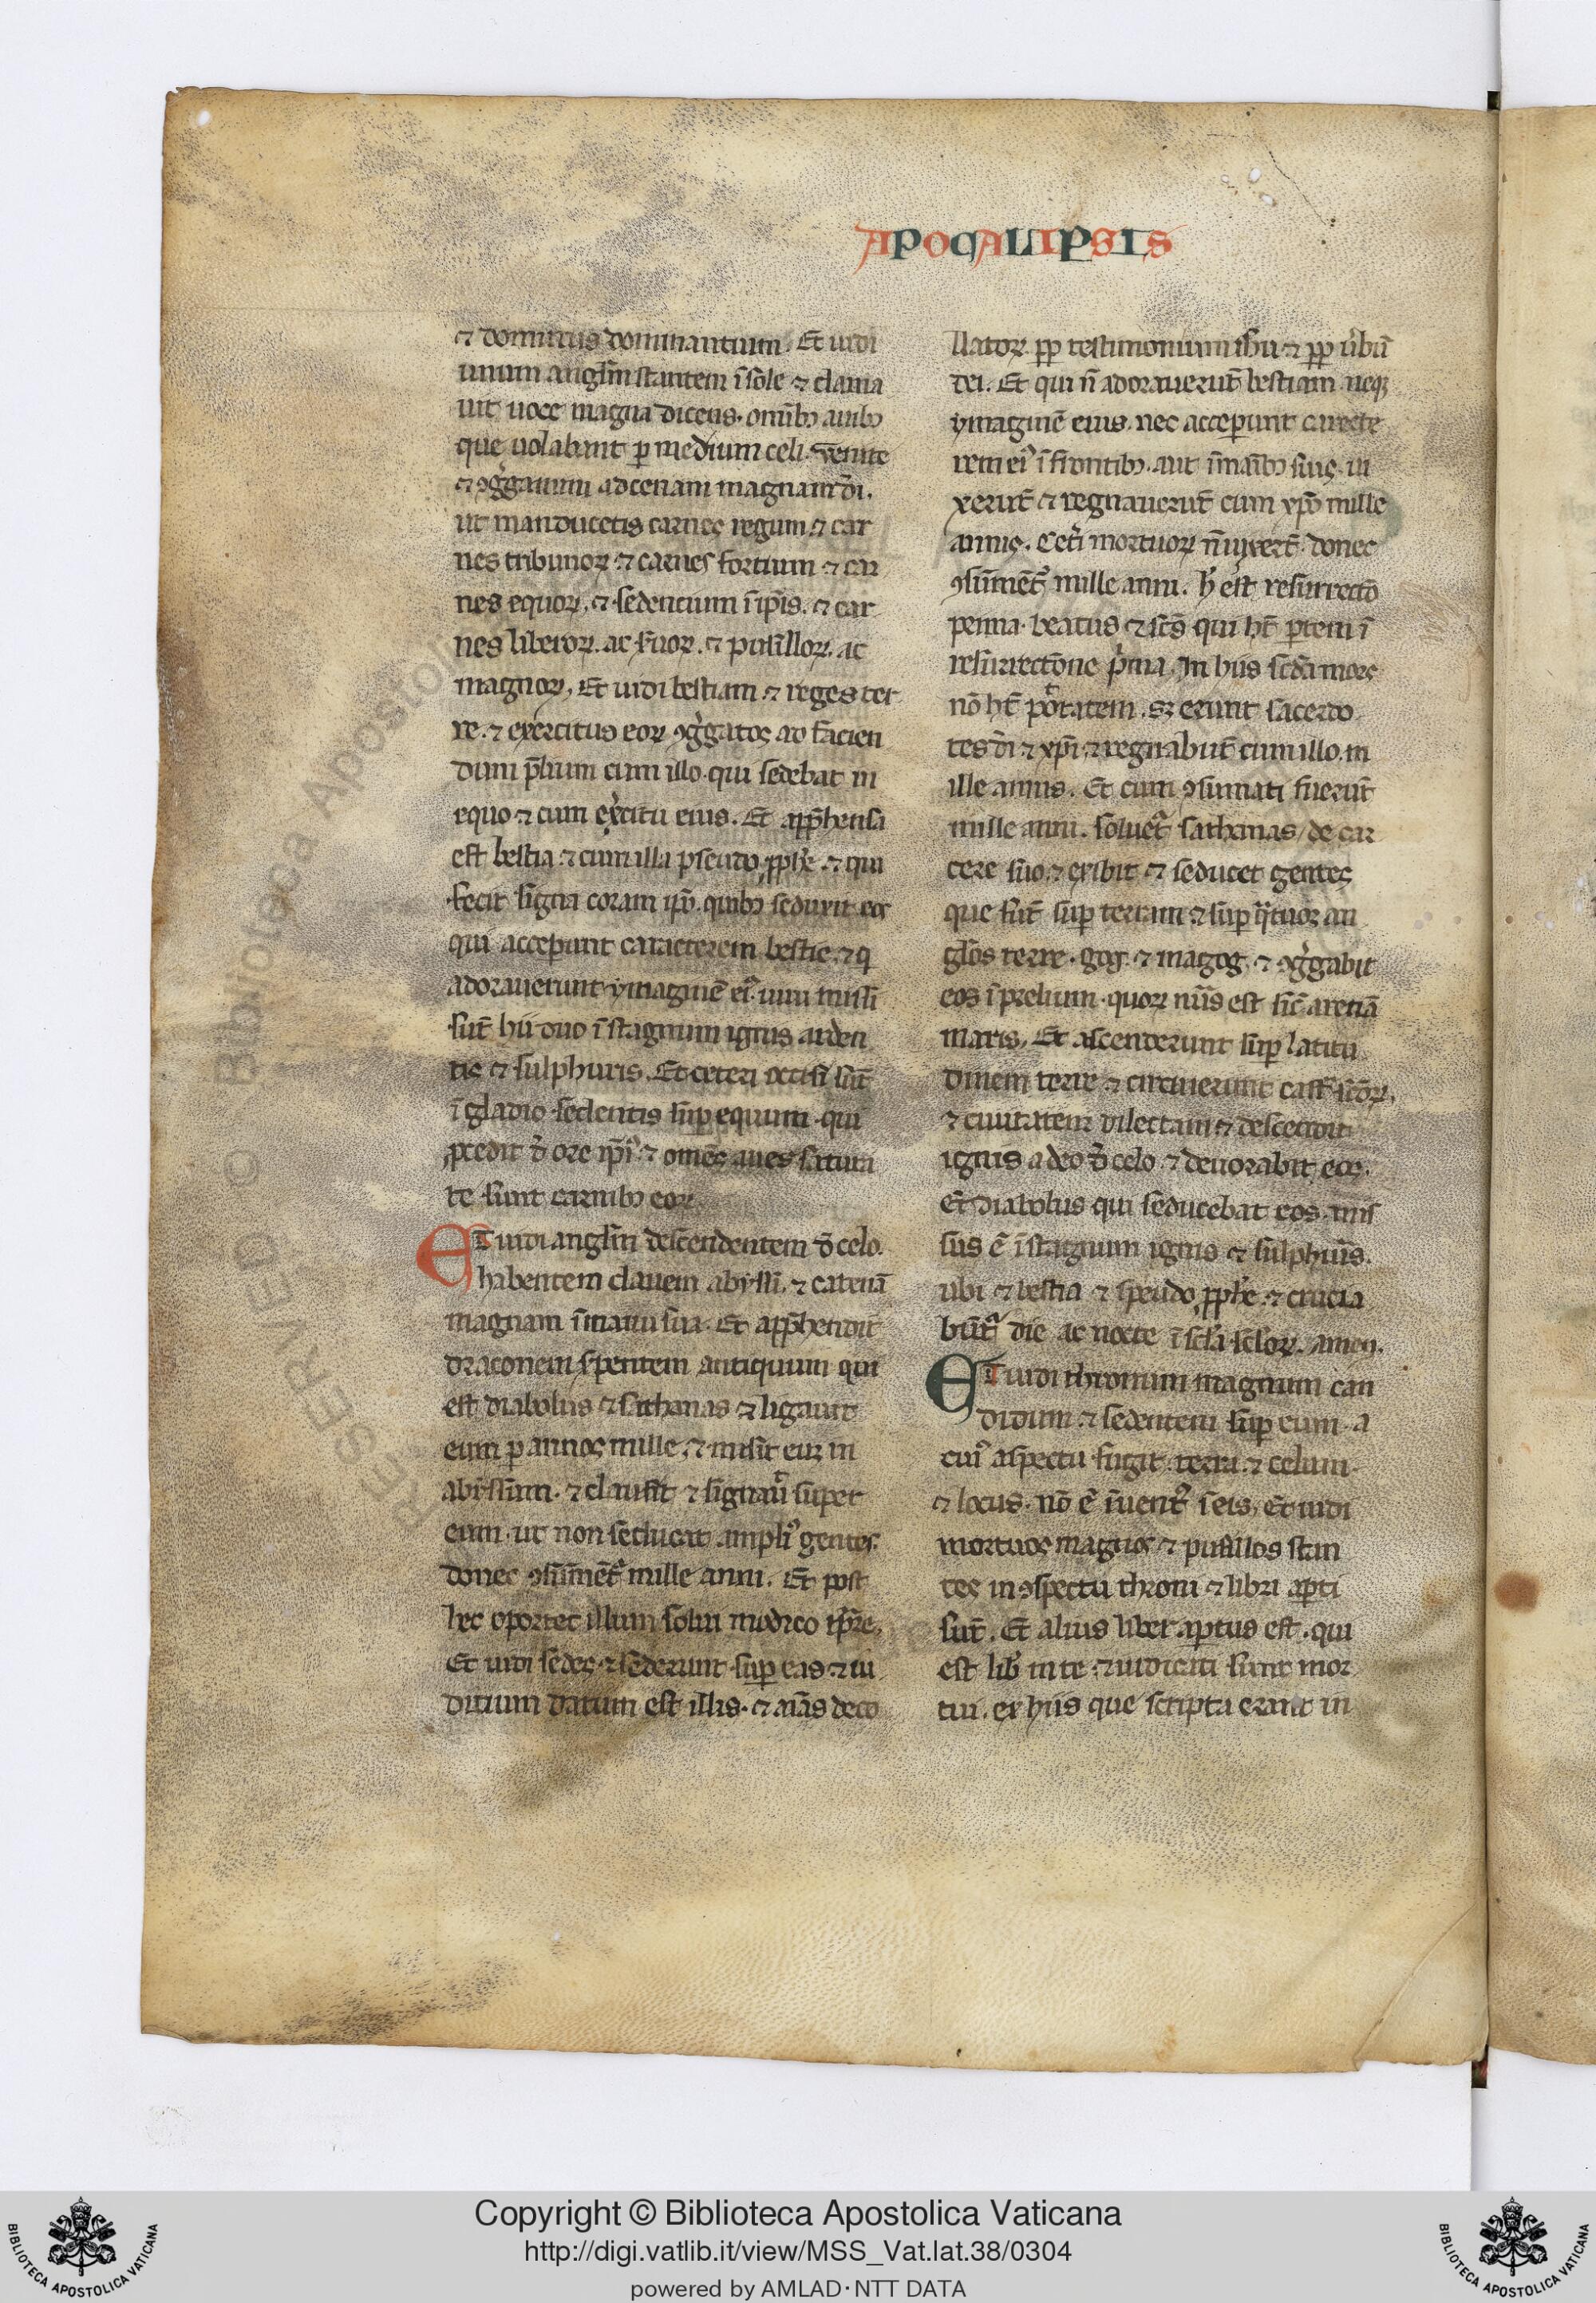 APOCALIPSIS
⁊ dominus dominantium. Et uidi
unum angľm stantem ī sole ⁊ clama
uit uoce magna dicens. omībꝫ auibꝫ
que uolabant ꝑ medium celi. Venite
⁊ ꝯg̀gamini ad cenam magnam dī.
ut manducetis carnes regum ⁊ car
nes tribunoꝝ ⁊ carnes fortium ⁊ car
nes equoꝝ. ⁊ sedentium ī ip̄is. ⁊ car
nes liberoꝝ. ac s̄uoꝝ. ⁊ pusilloꝝ. ac
magnoꝝ. Et uidi bestiam ⁊ reges ter
re. ⁊ exercitus eoꝝ ꝯg̀gatos ad facien
dum p̄lium cum illo qui sedebat in
equo ⁊ cum ex̄citu eius. Et app̄hensa
est bestia ⁊ cum illa pseudo ꝓpħe ⁊ qui
fecit signa coram ip̄o. quibꝫ seduxit eos
qui acceperunt caracterem bestie. ⁊ q
adorauerunt ymaginē ei᷒. uiui missi
sūt hii duo ī stagnum ignis arden
tis ⁊ sulphuris. Et ceteri occisi sūt
ī gladio sedentis suꝑ equum qui
ꝓcedit d̄ ore ip̄i᷒ ⁊ omēs aues satura
te sunt carnibꝫ eoꝝ
ET uidi angľm descendentem d̄ celo.
habentem clauem abyssi. ⁊ catenā
magnam ī manu sua. Et app̄hendit
draconem s̄pentem antiquum qui
est diabolus ⁊ sathanas ⁊ ligauit
eum ꝑ annos mille. ⁊ misit euꝫ in
abyssum. ⁊ clausit ⁊ signauī super
eum. ut non seducat ampli᷒ gentes.
donec ꝯsūmēt᷑ mille anni. Et post
hec oportet illum solui modico tp̄re.
Et uidi sedes ⁊ sederunt suꝑ eas ⁊ iu
dicium datum est illis. ⁊ aīas deco
llatoꝝ. ꝓp testimonium ih̄u ⁊ ꝓp ūbū
dei. Et qui ñ adorauerūt bestiam neqꝫ
ymaginē eius. nec acceperunt caracte
rem ei᷒ ī frontibꝫ. aut ī manibꝫ suis. ui
xerūt ⁊ regnauerūt cum xp̄o mille
annis. Ceti mortuoꝝ ñ uixerūt. donec
ꝯsūmēt᷑ mille anni. h̄ est resurrectō
prima. beatus ⁊ sc̄s qui ht̄ ꝑtem ī
resurrectōne p̀ma. In hiis sc̄da mors
nō ht̄ potatem. sꝫ erunt sacerdo
tes dī ⁊ xp̄i. ⁊ regnabūt cum illo. m
ille annis. Et cum ꝯsumati fuerūt
mille anni. soluet᷑ sathanas de car
cere suo. ⁊ exibit ⁊ seducet gentes
que sūt suꝑ terram ⁊ suꝑ q̀tuor an
glōs terre. gog ⁊ magog. ⁊ ꝯg̀gabit
eos ī prelium. quoꝝ nūs est sic̄ arenā
maris. Et ascenderunt suꝑ latitu
dinem terre ⁊ circuierunt cast̄ sc̄oꝝ.
⁊ ciuitatem dilectam ⁊ descendit
ignis a deo d̄ celo. ⁊ deuorabit eos.
Et diabolus qui seducebat eos. mis
sus ē ī stagnum ignis ⁊ sulphuīs.
ubi ⁊ bestia ⁊ speudo ꝓpħe. ⁊ crucia
būt᷑ die ac nocte ī scľa scľoꝝ. amen.
ET uidi thronum magnum can
didum ⁊ sedentem suꝑ eum. a
cui᷒ aspectu fugit terra. ⁊ celum.
⁊ locus nō ē īuent᷒ ī eis. Et uidi
mortuos magnos ⁊ pusillos stan
tes in ꝯspectu throni ⁊ libri aꝑti
sūt. Et alius liber aꝑtus est. qui
est lib̄ uite. ⁊ iudicati sunt mor
tui. ex hiis que scripta erant in
© Biblioteca Apostolica Vaticana
Copyright © Biblioteca Apostolica Vaticana
http://digi.vatlib.it/view/MSS_Vat.lat.38/0304
powered by AMLAD·NTT DATA
BIBLIOTECA APOSTOLICA VATICANA
BIBLIOTECA APOSTOLICA VATICANA